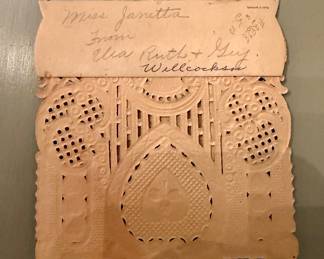 Miss Janetta
From
Clea Ruth & Guy
Willcockson